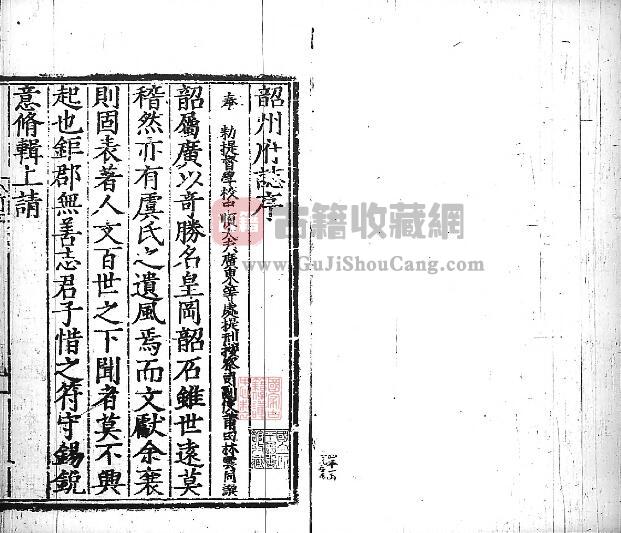 韶州府誌序
奉 勑提督學校中順大夫廣東等處提刑按察司副使莆田林雲同譔
韶屬廣以奇勝名皇岡韶石雖世遠莫
稽然亦有虞氏之遺風焉而文獻余襄
則固表著人文百世之下聞者莫不興
起也鉅郡無善志君子惜之符守錫銳
意脩輯上請
古籍收藏網
www.GuJiShouCang.com